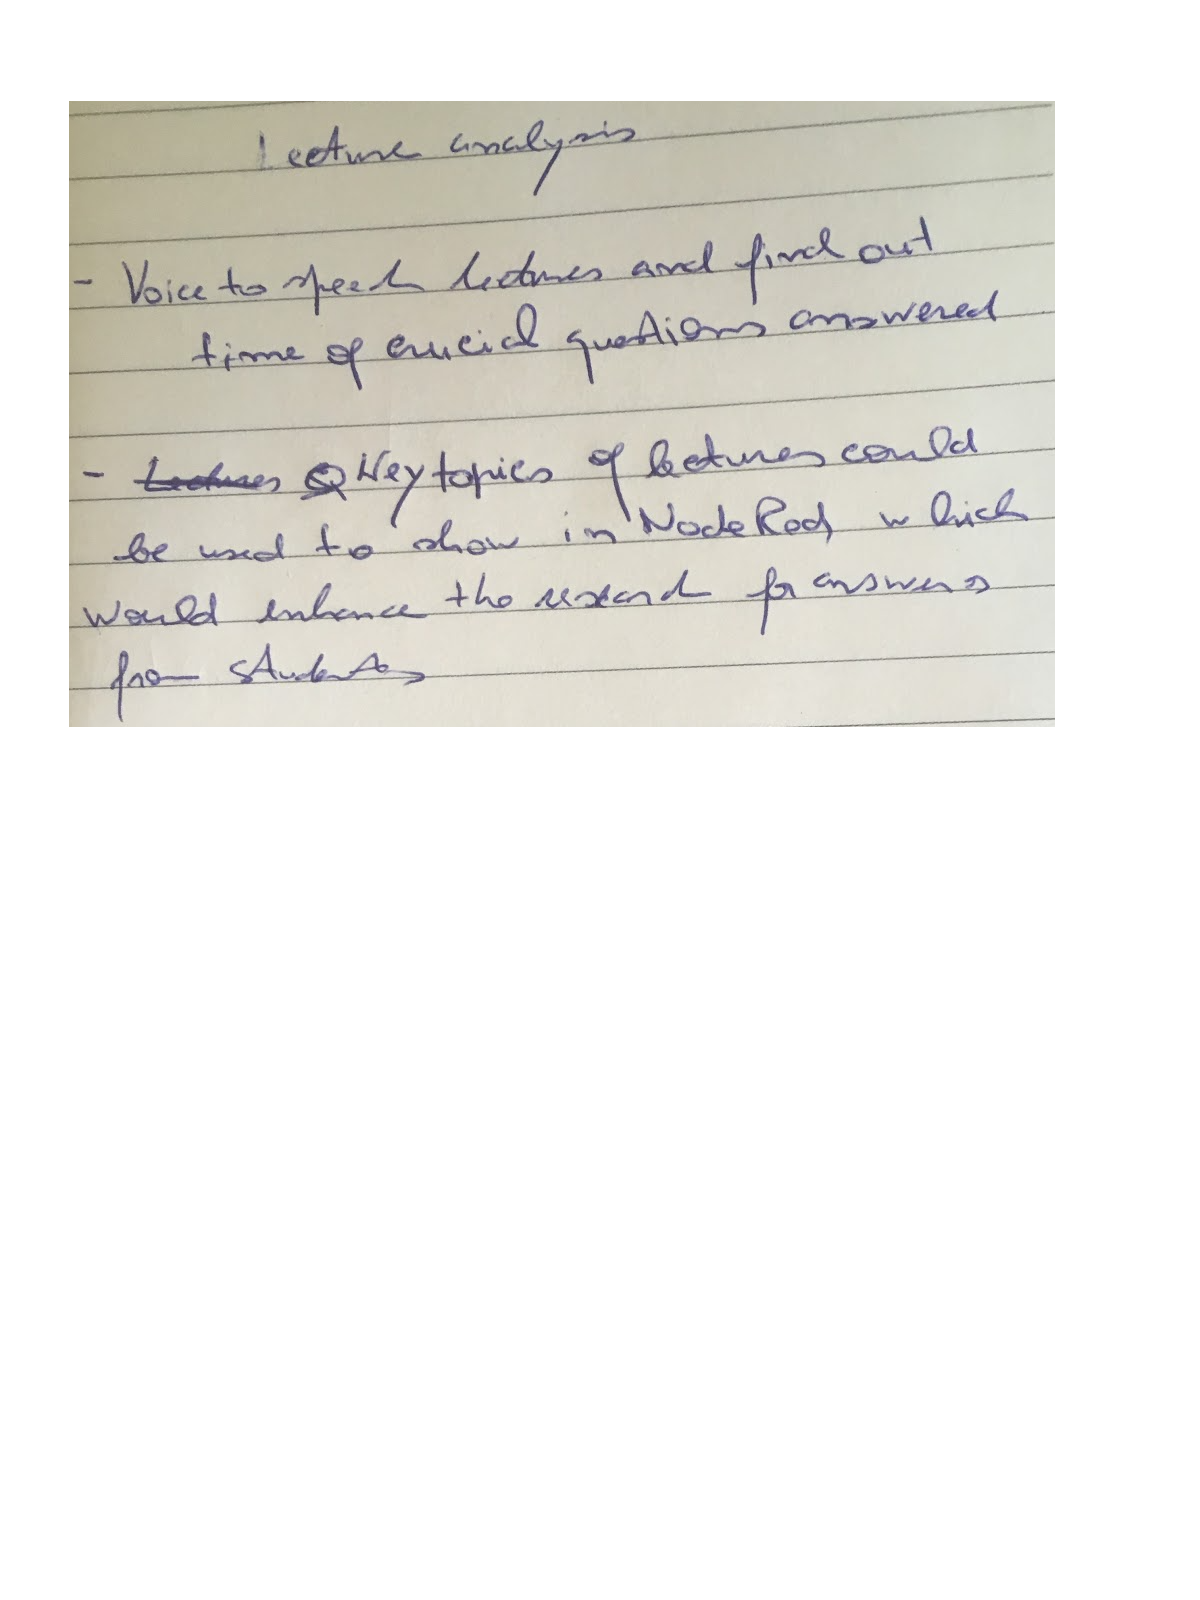 Lecture analysis
- Voice to speech lectures and find out
time of crucial questions answered
- Lectures Q Key topics of lectures could
be used to show in NodeRed, which
would enhance the research for answers
from students